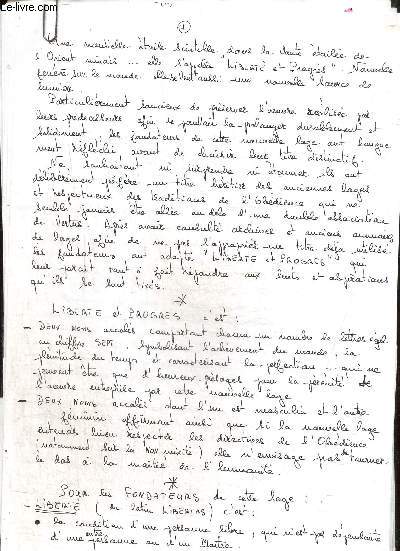 1
Une nouvelle étoile scintille dans la voute étoilée de
l'Orient niçois ... elle s'appelle "LIBERTÉ et Progrès". Nouvelle
fenêtre sur le monde, elle est aussi une nouvelle source de
lumière.
Particulièrement soucieux de préserver l'oeuvre réalisée par
leurs prédécesseurs afin de pouvoir la prolonger durablement et
solidement, les fondateurs de cette nouvelle loge ont longue-
ment réfléchi avant de choisir leur titre distinctif.
Ne souhaitant ni surprendre ni étonner, ils ont
délibérément préféré un titre héritier des anciennes loges
et respectueux des traditions de l'Obédience qui ne
semble jamais être allée au delà d'une double association
de vertus. Après avoir consulté archives et anciens annuaires
de loges, afin de ne pas s'approprier un titre déjà utilisé
les fondateurs ont adopté "LIBERTE et PROGRES" qui
leur parait tout à fait répondre aux buts et aspirations
qu'ils se sont fixés.
*
LIBERTE et PROGRES c'est :
- DEUX noms accolés comportant chacun un nombre de lettres égal
au chiffre SEPT, symbolisant l'achèvement du monde, la
plénitude du temps et caractérisant la perfection ... qui ne
peuvent être que d'heureux présages pour la pérennité de
l'oeuvre entreprise par cette nouvelle loge
- DEUX noms accolés dont l'un est masculin et l'autre
féminin affirmant ainsi que si la nouvelle loge
entend bien respecter les directives de l'Obédience
(notamment sur la non mixité) elle n'envisage pas de tourner
le dos à la moitié de l'humanité.
*
POUR les FONDATEURS de cette loge :
- LIBERTE (du latin LIBERTAS) c'est :
• la condition d'une personne libre, qui n'est pas dépendante
d'une autre personne ou d'un Maître.